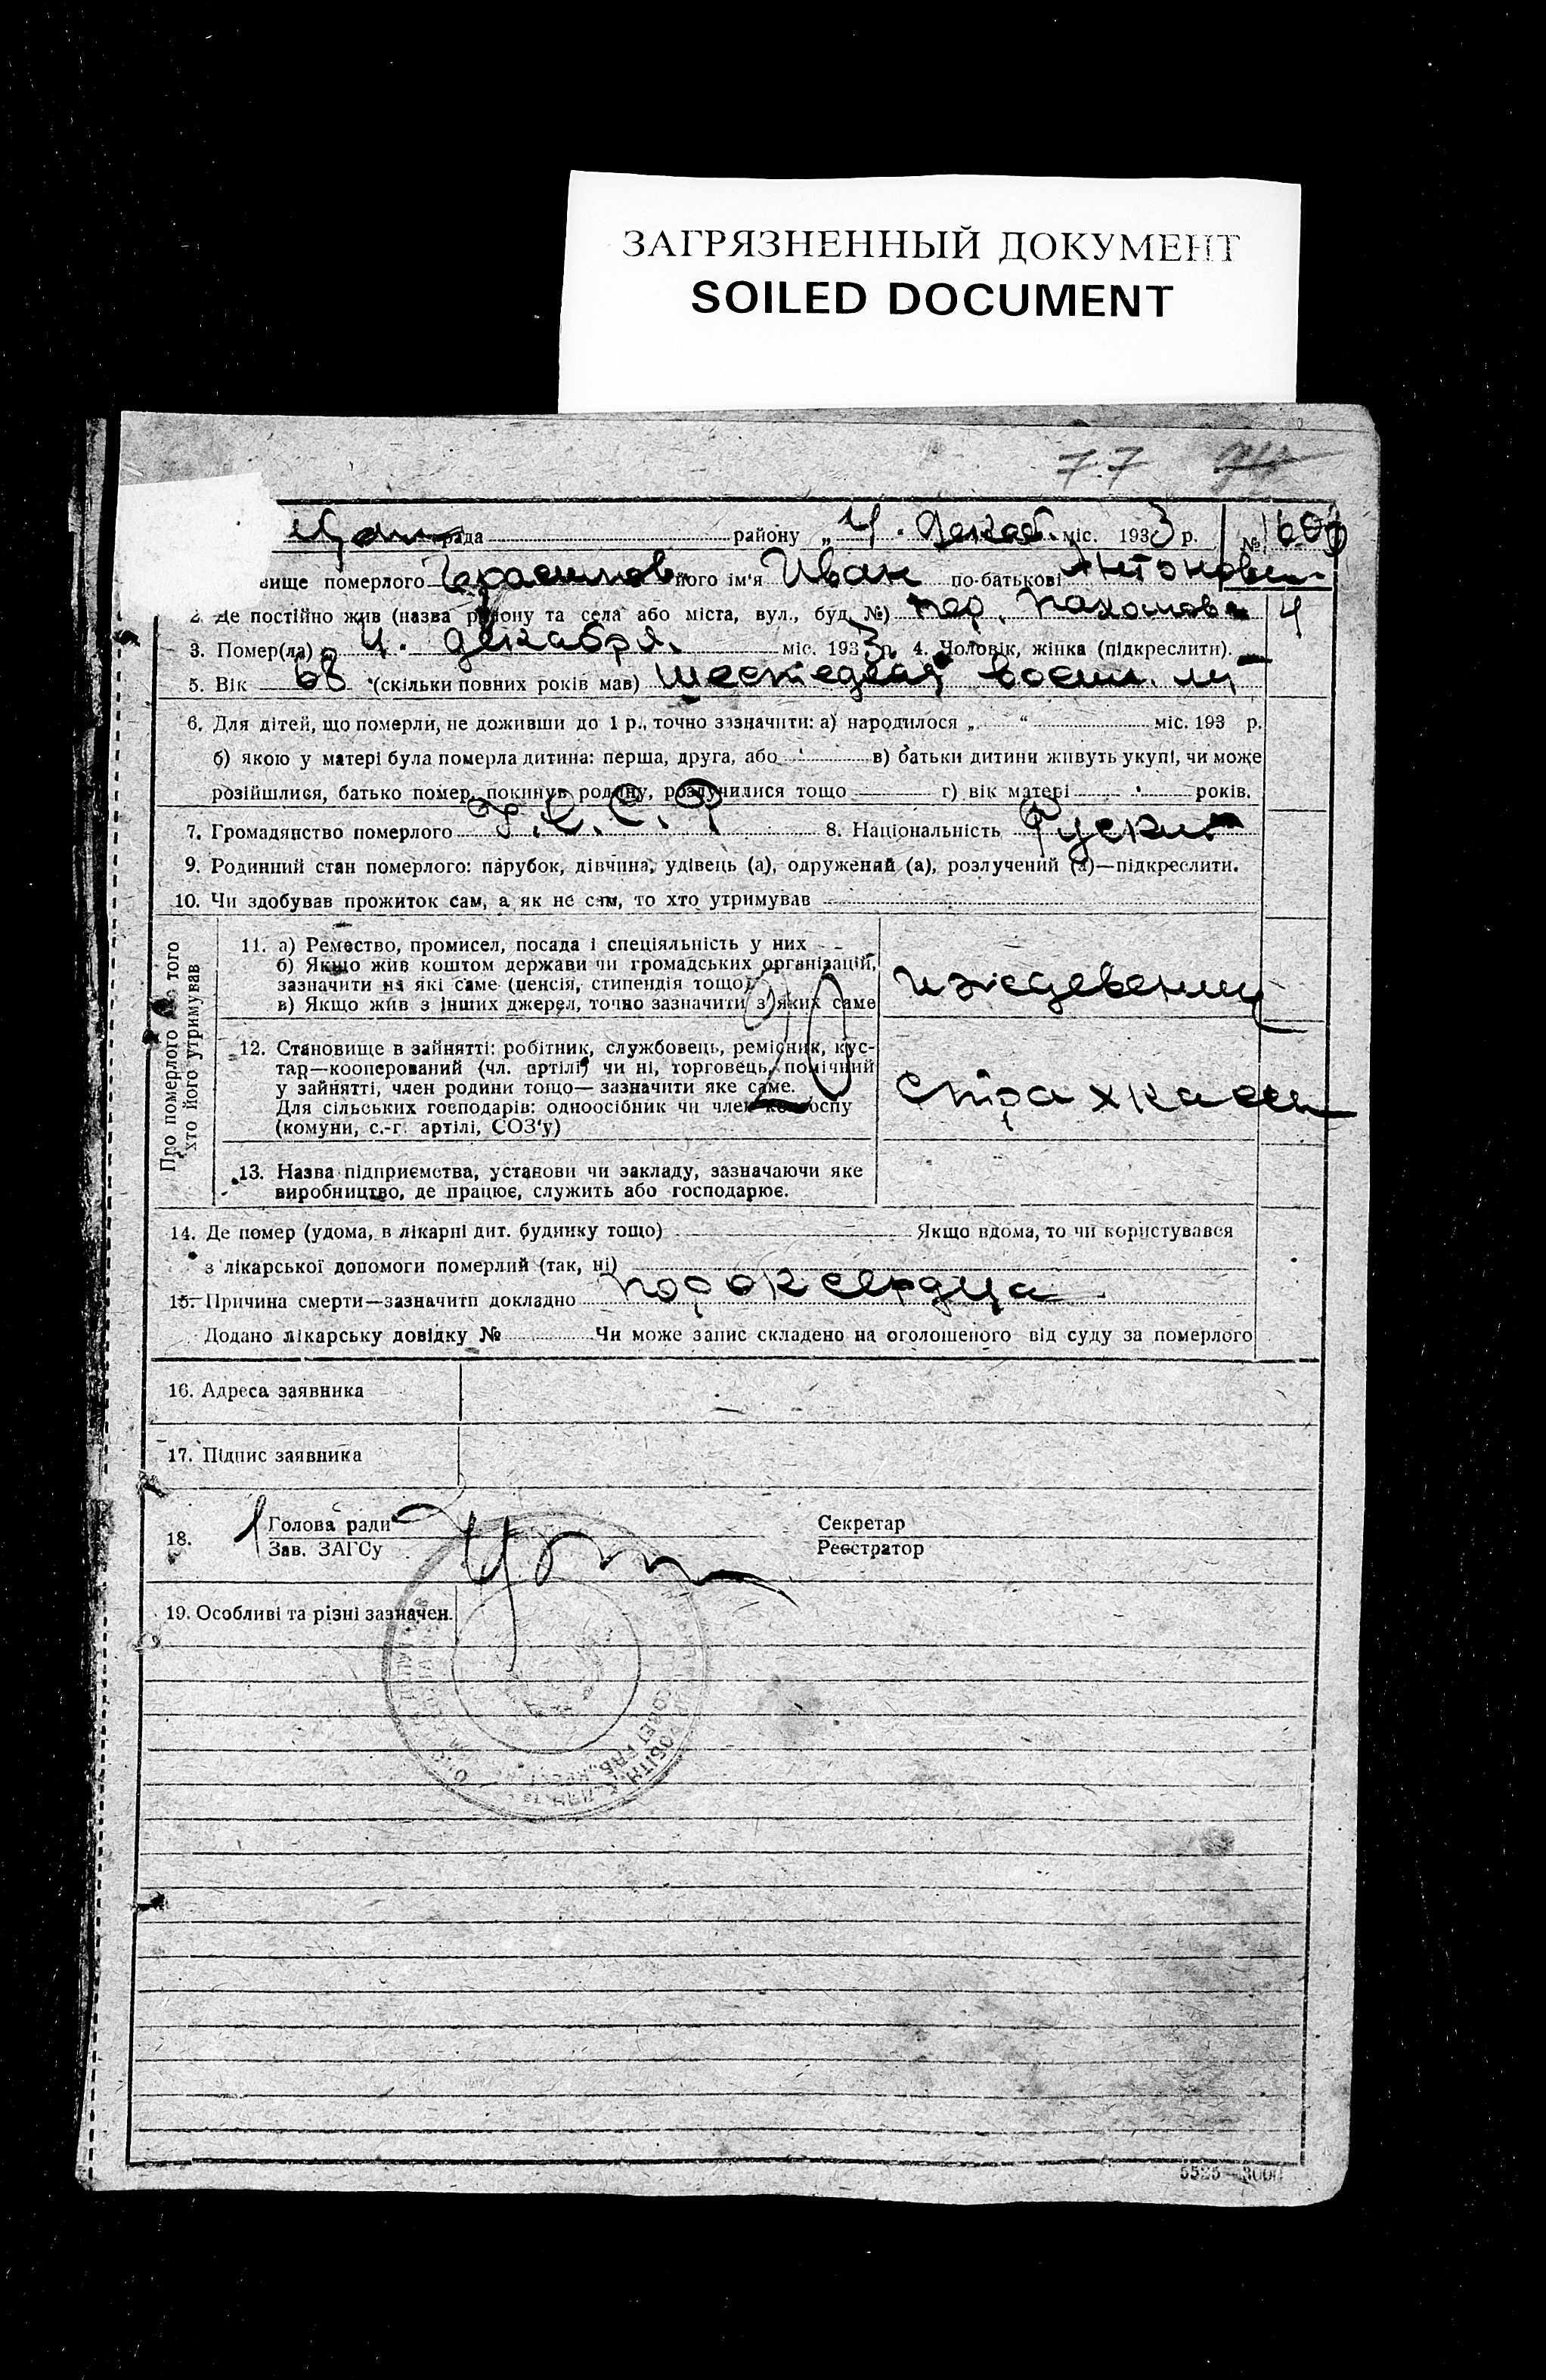 ЗАГРЯЗНЕННЫЙ ДОКУМЕНТ
SOILED DOCUMENT
77
рада району „ 4. Декаб. міс. 1933 р. №
вище померлого Герасимов його ім'я Иван по-батькові Антонович
2. Де постійно жив (назва району та села або міста, вул., буд. №) пер. Пахомова 4
3. Помер(ла) 4. декабря міс. 1933 р. 4. Чоловік, жінка (підкреслити).
5. Вік 68 (скільки повних років мав) шестьдесят восем. л.
6. Для дітей, що померли, не доживши до 1 р., точно зазначити: а) народилося „ “ міс. 193 р.
б) якою у матері була померла дитина: перша, друга, або в) батьки дитини живуть укупі, чи може
розійшлися, батько помер, покинув родину, розлучилися тощо г) вік матері років.
7. Громадянство померлого У.С.С.Р 8. Національність Руский
9. Родинний стан померлого: парубок, дівчина, удівець (а), одружений (а), розлучений (а)—підкреслити.
10. Чи здобував прожиток сам, а як не сам, то хто утримував
Про померлого або того хто його утримував
11. а) Ремество, промисел, посада і спеціяльність у них
б) Якщо жив коштом держави чи громадських організацій,
зазначити на які саме (пенсія, стипендія тощо)
в) Якщо жив з інших джерел, точно зазначити з яких саме
иждевениц
20
12. Становище в зайнятті: робітник, службовець, ремісник, кус-
тар—кооперований (чл. артілі) чи ні, торговець, помічний
у зайнятті, член родини тощо— зазначити яке саме.
Для сільських господарів: одноосібник чи член колгоспу
(комуни, с.-г. артілі, СОЗ'у)
страхкассы
13. Назва підприємства, установи чи закладу, зазначаючи яке
виробництво, де працює, служить або господарює.
14. Де помер (удома, в лікарні дит. будинку тощо) Якщо вдома, то чи користувався
з лікарської допомоги померлий (так, ні)
15. Причина смерти—зазначити докладно порок сердца
Додано лікарську довідку № Чи може запис складено на оголошеного від суду за померлого
16. Адреса заявника
17. Підпис заявника
18. Голова ради Секретар
Зав. ЗАГСу Реєстратор
19. Особливі та різні зазначен.